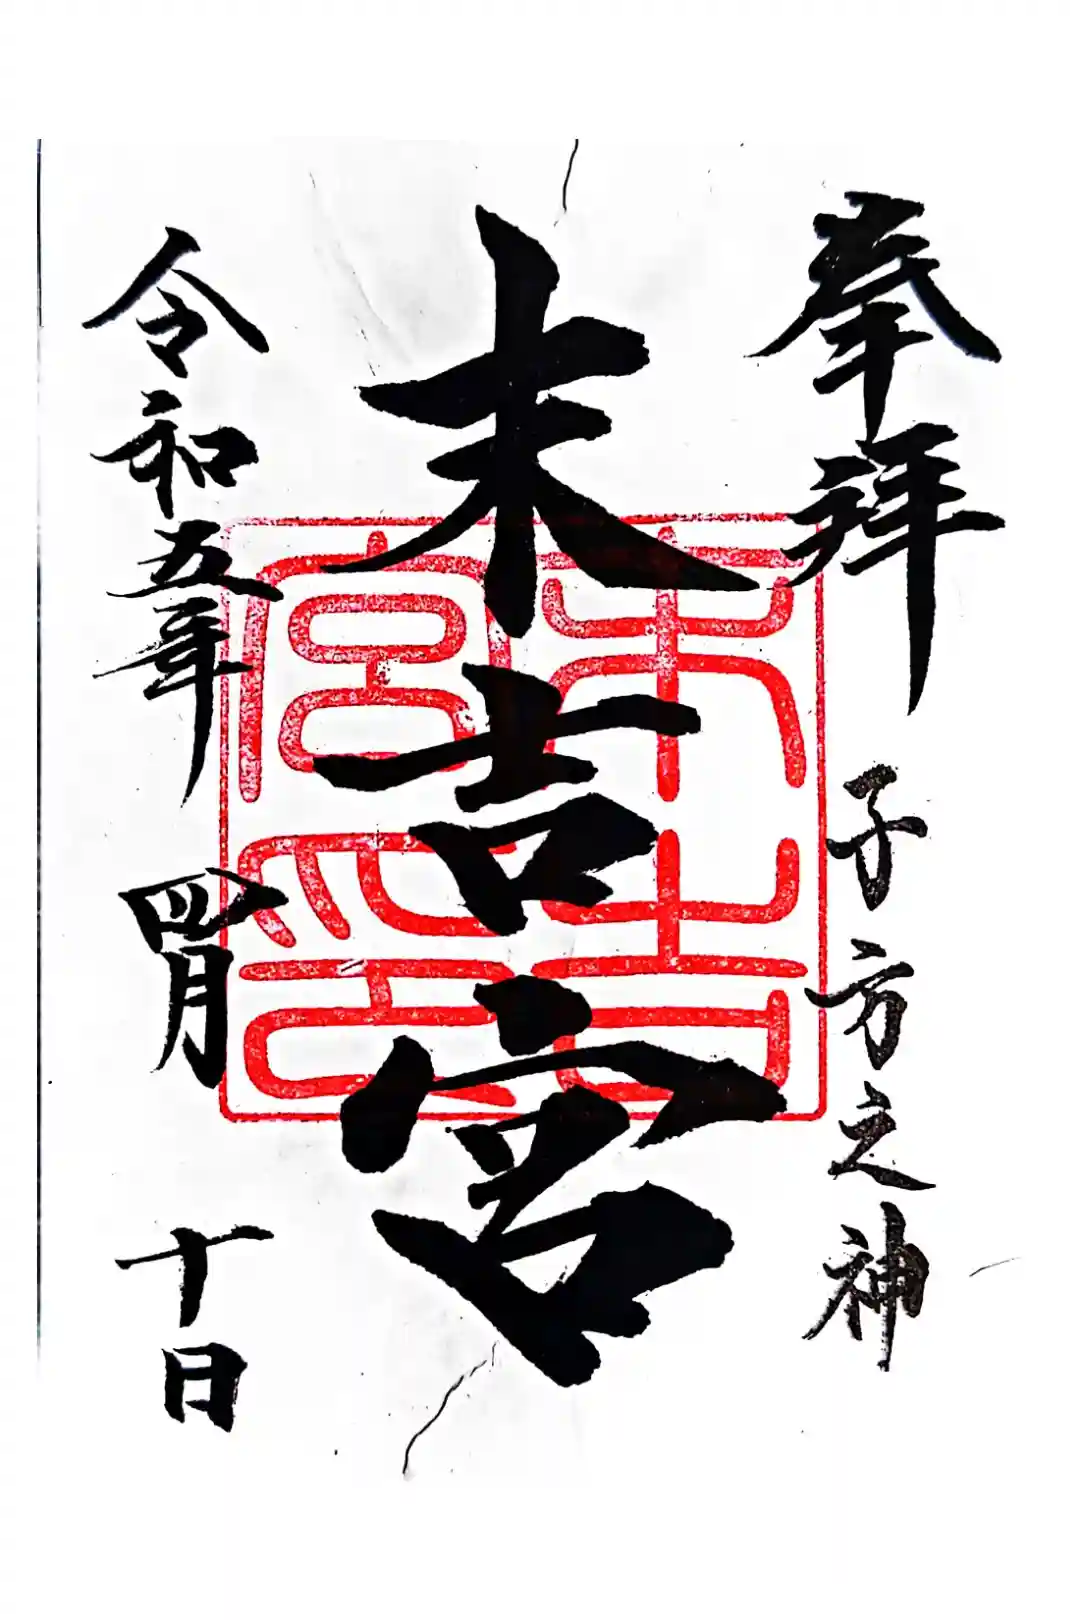 奉拝
子方之神
末吉宮
末吉宮印
令和五年
四月
十日